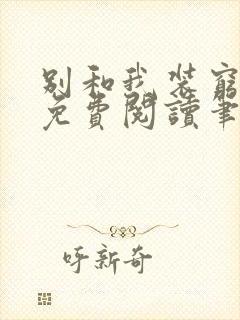 别和我装穷
免费阅读笔
呼新奇